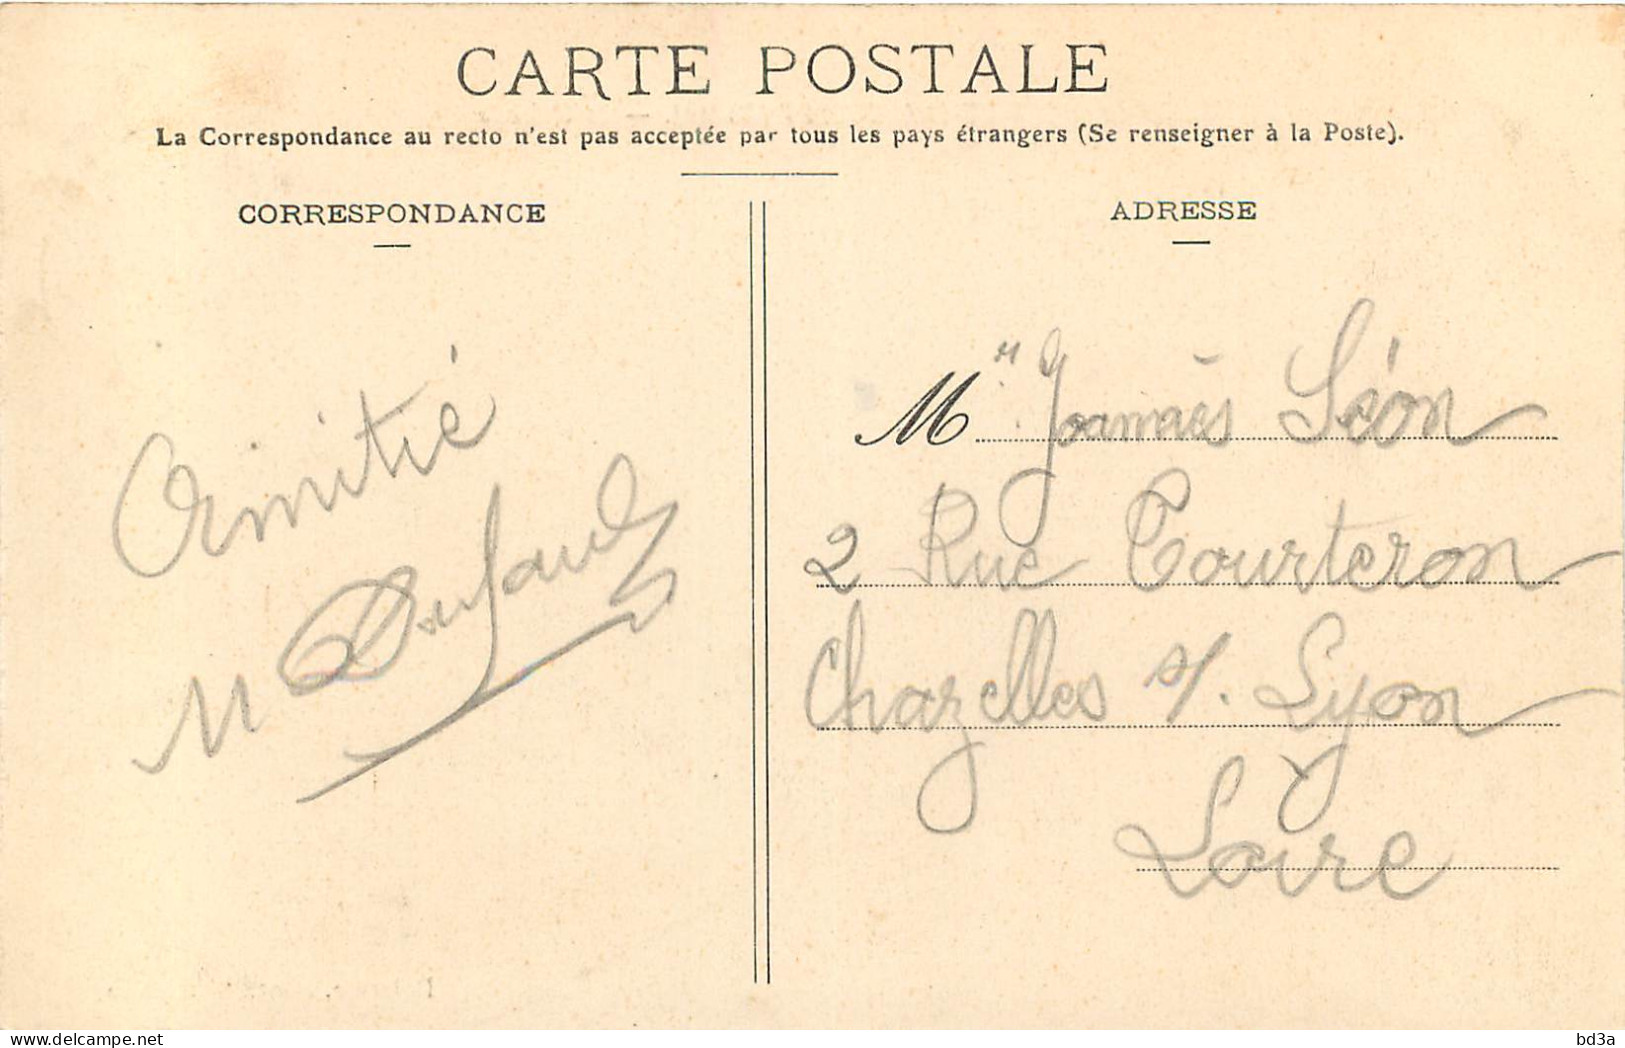 CARTE POSTALE
La Correspondance au recto n'est pas acceptée par tous les pays étrangers (Se renseigner à la Poste).
CORRESPONDANCE
Amitié
M Dufaud
ADRESSE
Mr Joannès Séon
2 Rue Tourteron
Chazelles s/. Lyon
Loire
bd3a